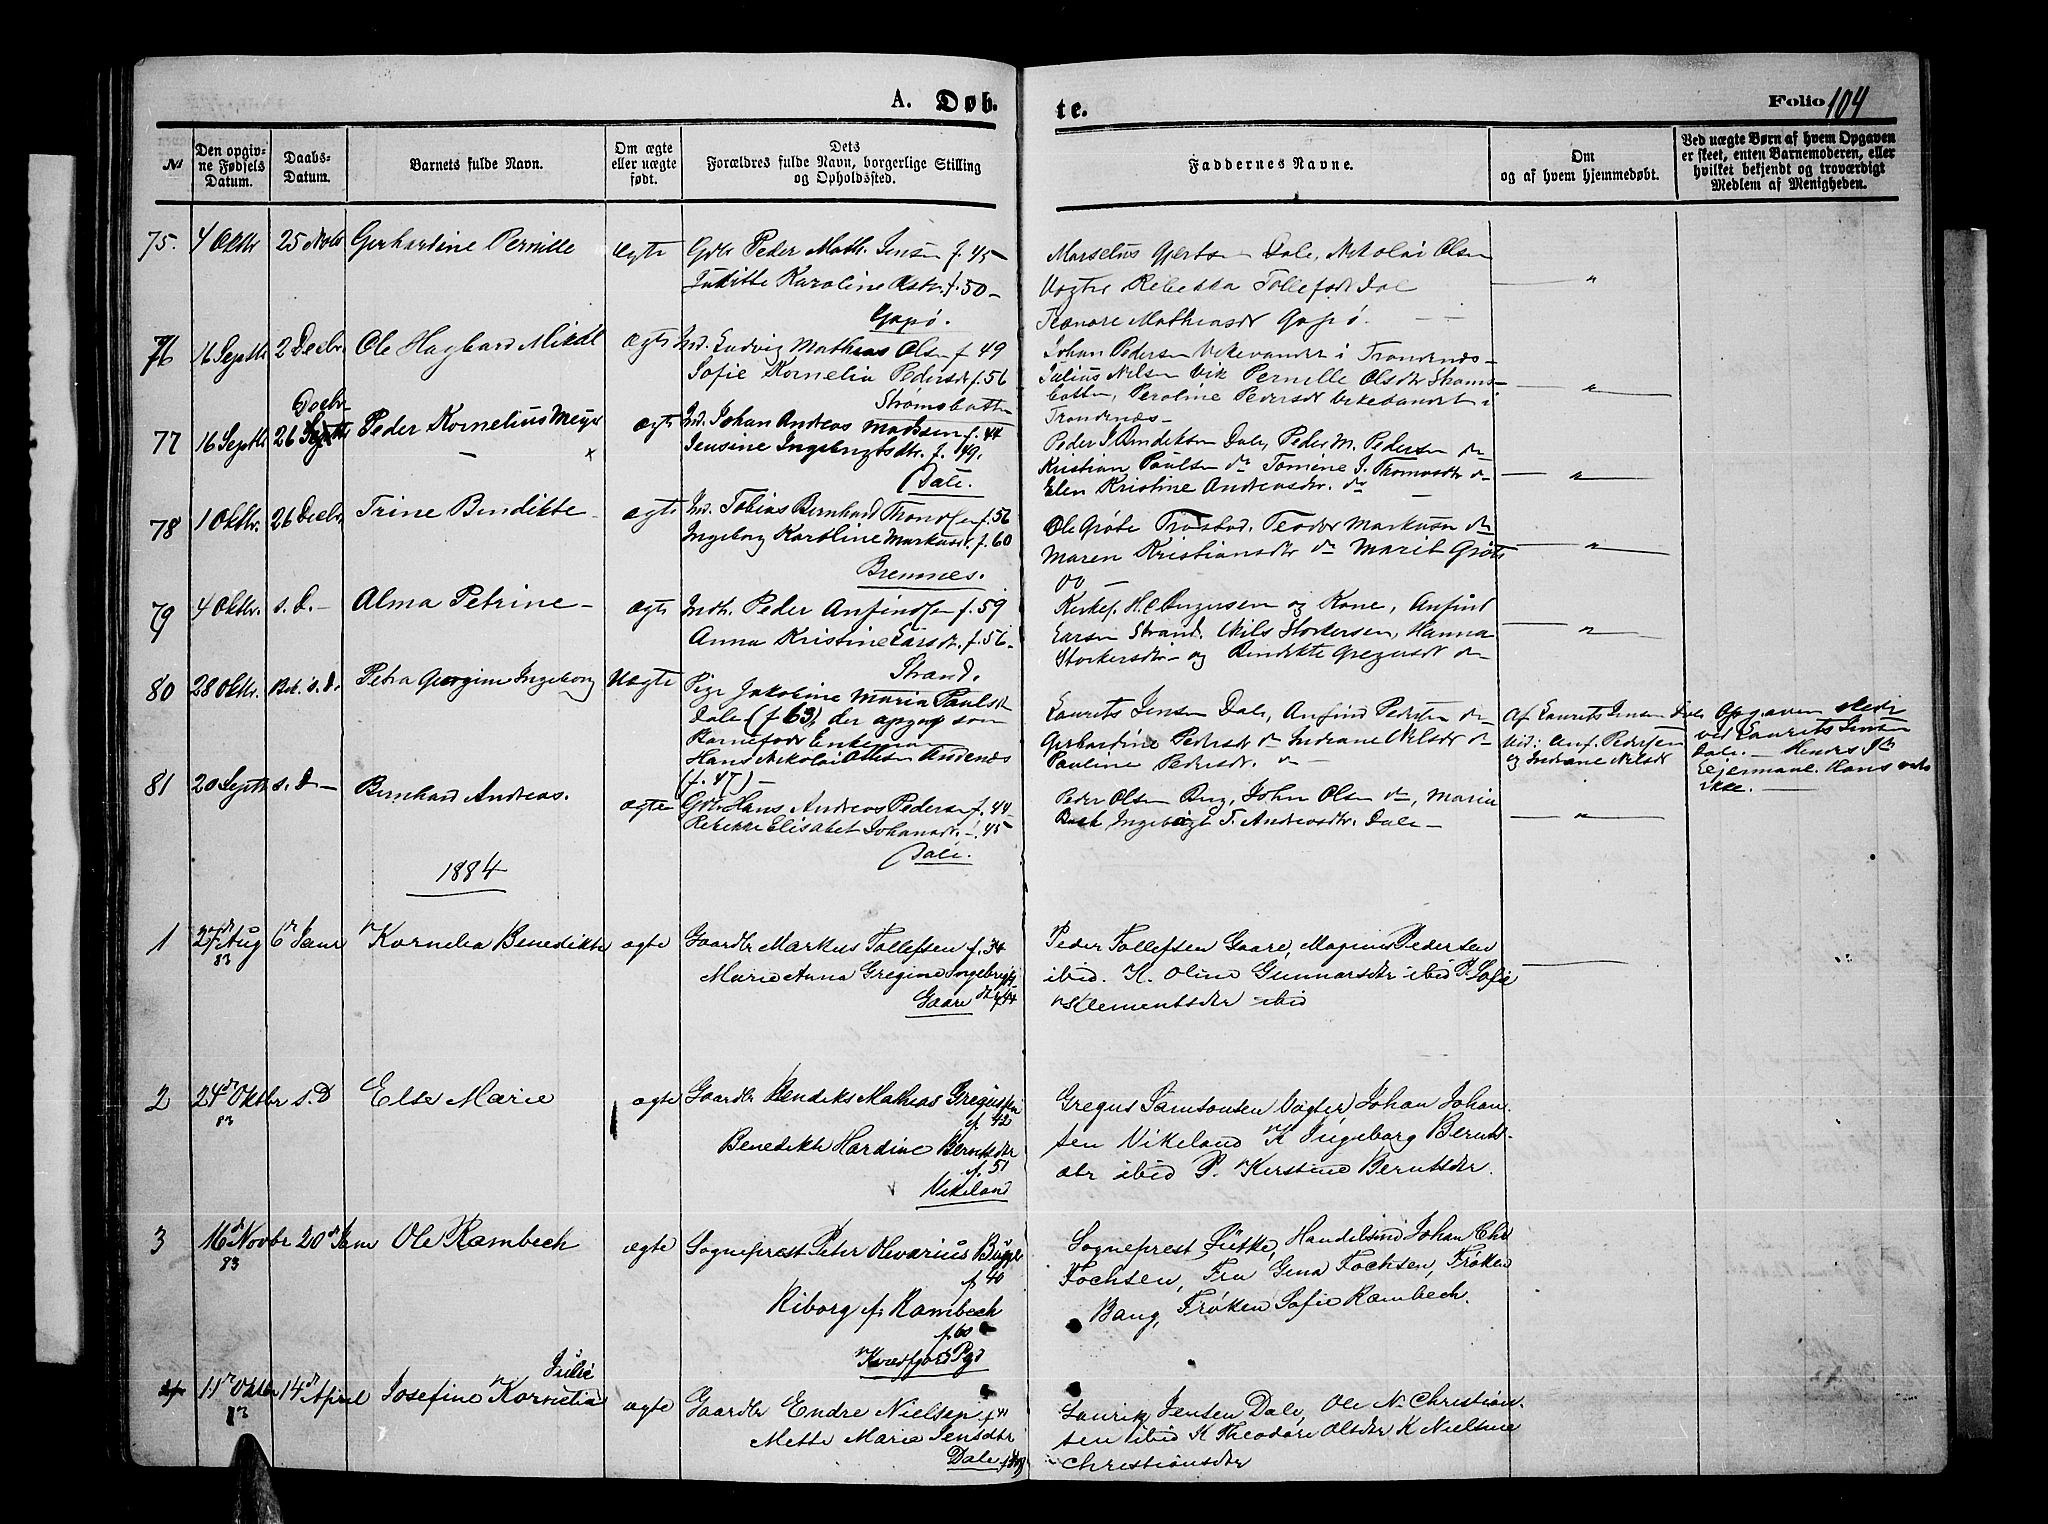 A. Døb. te. Folio 104
№
Den opgiv-
ne Fødsels
Datum.
Daabs-
Datum.
Barnets fulde Navn.
Om ægte
eller uægte
født.
Dets
Forældres fulde Navn, borgerlige Stilling
og Opholdssted.
Faddernes Navne.
Om
og af hvem hjemmedøbt.
Ved uægte Børn af hvem Opgaven
er skeet, enten Barnemoderen, eller
hvilket bekjendt og troværdigt
Medlem af Menigheden.
75. 4 Oktbr 25 Novbr Gerhardine Pernille ægte Gdbr Peder Math. Jensen f. 45 –
Karoline f. 50 –
Gapø.
Marselius Dale, Nikolai Olsen
Dale
Mathiasdr Gapø. –
76 16 Septbr 2 Decbr. Ole Hagbard Mikal ægte Ind. Ludvig Mathias Olsen f. 49
Sofie Kornelia Pedersdr f. 56
Strømsbotten
Johan Pedersen i Trondenæs –
Julius Nilsen Vik Pernille Olsdtr Strøms-
botten, Peroline Pedersdr i
Trondenæs –
77 16 Septbr 26 Septbr Decbr Peder Kornelius Meyer ægte Ind. Johan Andreas Madsen f. 44
Jensine Ingebrigtsdtr. f. 49.
Dale.
Peder J. Dale, Peder M. Pedersen do
Kristian Paulsen do Tomine J. Thomasdtr do
Elen Kristine Andreasdr. do –
78 1 Oktbr. 26 Decbr Trine Bendikte ægte Ind. Tobias Bernhard f. 56
Ingeborg Karoline Markusdr. f. 60
Bremnes.
Ole Grøte Teodor Markusen do
Maren Kristiansdtr do Marit Grøte
do –
79 4 Oktbr. s. d. – Alma Petrine – ægte Indr. Peder Anfindsen f. 59
Anna Kristine Larsdr. f. 56 –
Strand.
og Kone, Anfind
Larsen Strand, Nils Storkersen, Hanna
Storkersdtr – og Bendikte Gregusdr do –
80 28 Oktbr. Bek. s. d. Petra Georgine Ingeborg Uægte Pige Jakobine Maria Paulsdr
Dale (f 63), der opgav som
Barnefader Enkem.
Hans Nikolai Andenæs
(f. 47) –
Laurits Jensen Dale, Anfind Pedersen do –
Gerhardine Pedersdr do Indiane Nilsdr do –
Pauline Pedersdr. do –
Af Laurits Jensen Dale
Vid: Anf. Pedersen
og Indiane Nilsdr
Opgaven skede
ved Laurits Jensen
Dale. –
Hans
ikke. –
81 20 Septbr s. d – Bernhard Andreas. ægte Gdbr Hans Andreas Pedersen f. 44 –
Elisabet Johansdr. – f. 45
Dale.
Peder Olsen John Olsen do, Maria
Andreasdtr. Dale –
1884
1 27de Aug 83 6te Janr Kornelia Benedikte ægte Gaardbr Markus Tollefsen f. 34
Marie Anna Gregine Ingebrigts-
dtr f. 44
Gaare
Peder Tollefsen Gaare, Magnus Pedersen
ibid. K. Oline Gunnarsdtr ibid P. Sofie
Klementsdtr ibid
2 24de Oktbr 83 s. D Else Marie ægte Gaardbr Bendiks Mathias Gregussen
f. 42
Benedikte Hardine Berntsdtr
f. 51
Vikeland
Gregus Samsonsen Vogter Johan Johan-
sen Vikeland K Ingeborg Bernts-
dtr ibid P. Kerstine Berntsdtr.
3 16de Novbr 83 20de Jan Ole Rambech ægte Sogneprest Peter Olvarius Bugge
f. 40
Riborg f. Rambech
f. 60
Kvedfjord Pgd
Sogneprest Lütke, Handelsmd Johan Chr
Fochsen, Fru Gina Fochsen, Frøken
Bang, Frøken Sofie Rambech.
4 11te Oktbr 83 14de April Josefine Kornelia Julie ægte Gaardbr Endre Nielsen f. 41
Mette Marie Jensdtr
Dale
Laurik Jensen Dale, Ole N. Christian-
sen ibid K Theodore Olsdtr K Nielsine
Christiansdtr